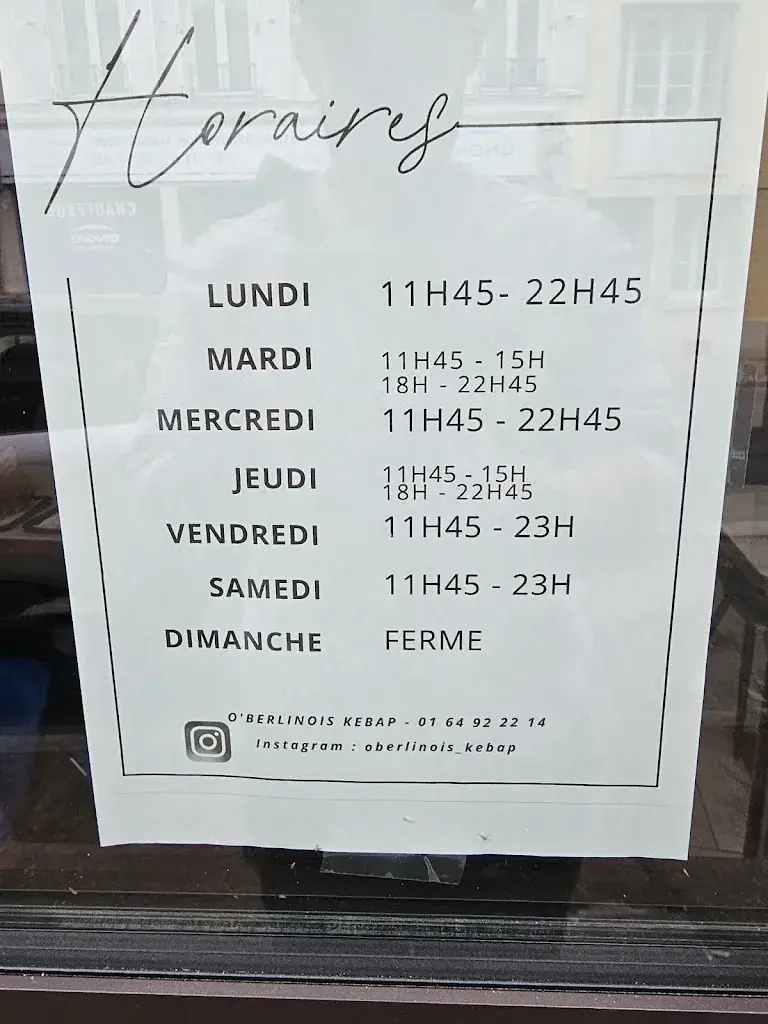 Horaires
LUNDI 11H45- 22H45
MARDI 11H45 - 15H
18H - 22H45
MERCREDI 11H45 - 22H45
JEUDI 11H45 - 15H
18H - 22H45
VENDREDI 11H45 - 23H
SAMEDI 11H45 - 23H
DIMANCHE FERME
O'BERLINOIS KEBAP - 01 64 92 22 14
Instagram : oberlinois_kebap